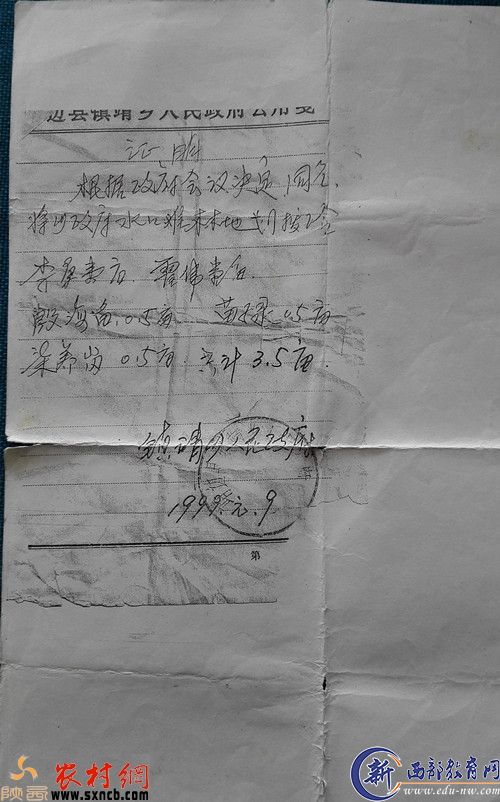 边县镇靖乡人民政府公用笺
证明
根据政府会议决定,同意
将乡政府水口滩林地划拨给
李 亩 亩
殷海 0.5亩 苗 0.5亩
梁 岗 0.5亩 共计3.5亩
镇靖乡人民政府
1999.元.9
第
陕西 农村網
www.sxncb.com
新 西部教育网
www.edu-nw.com